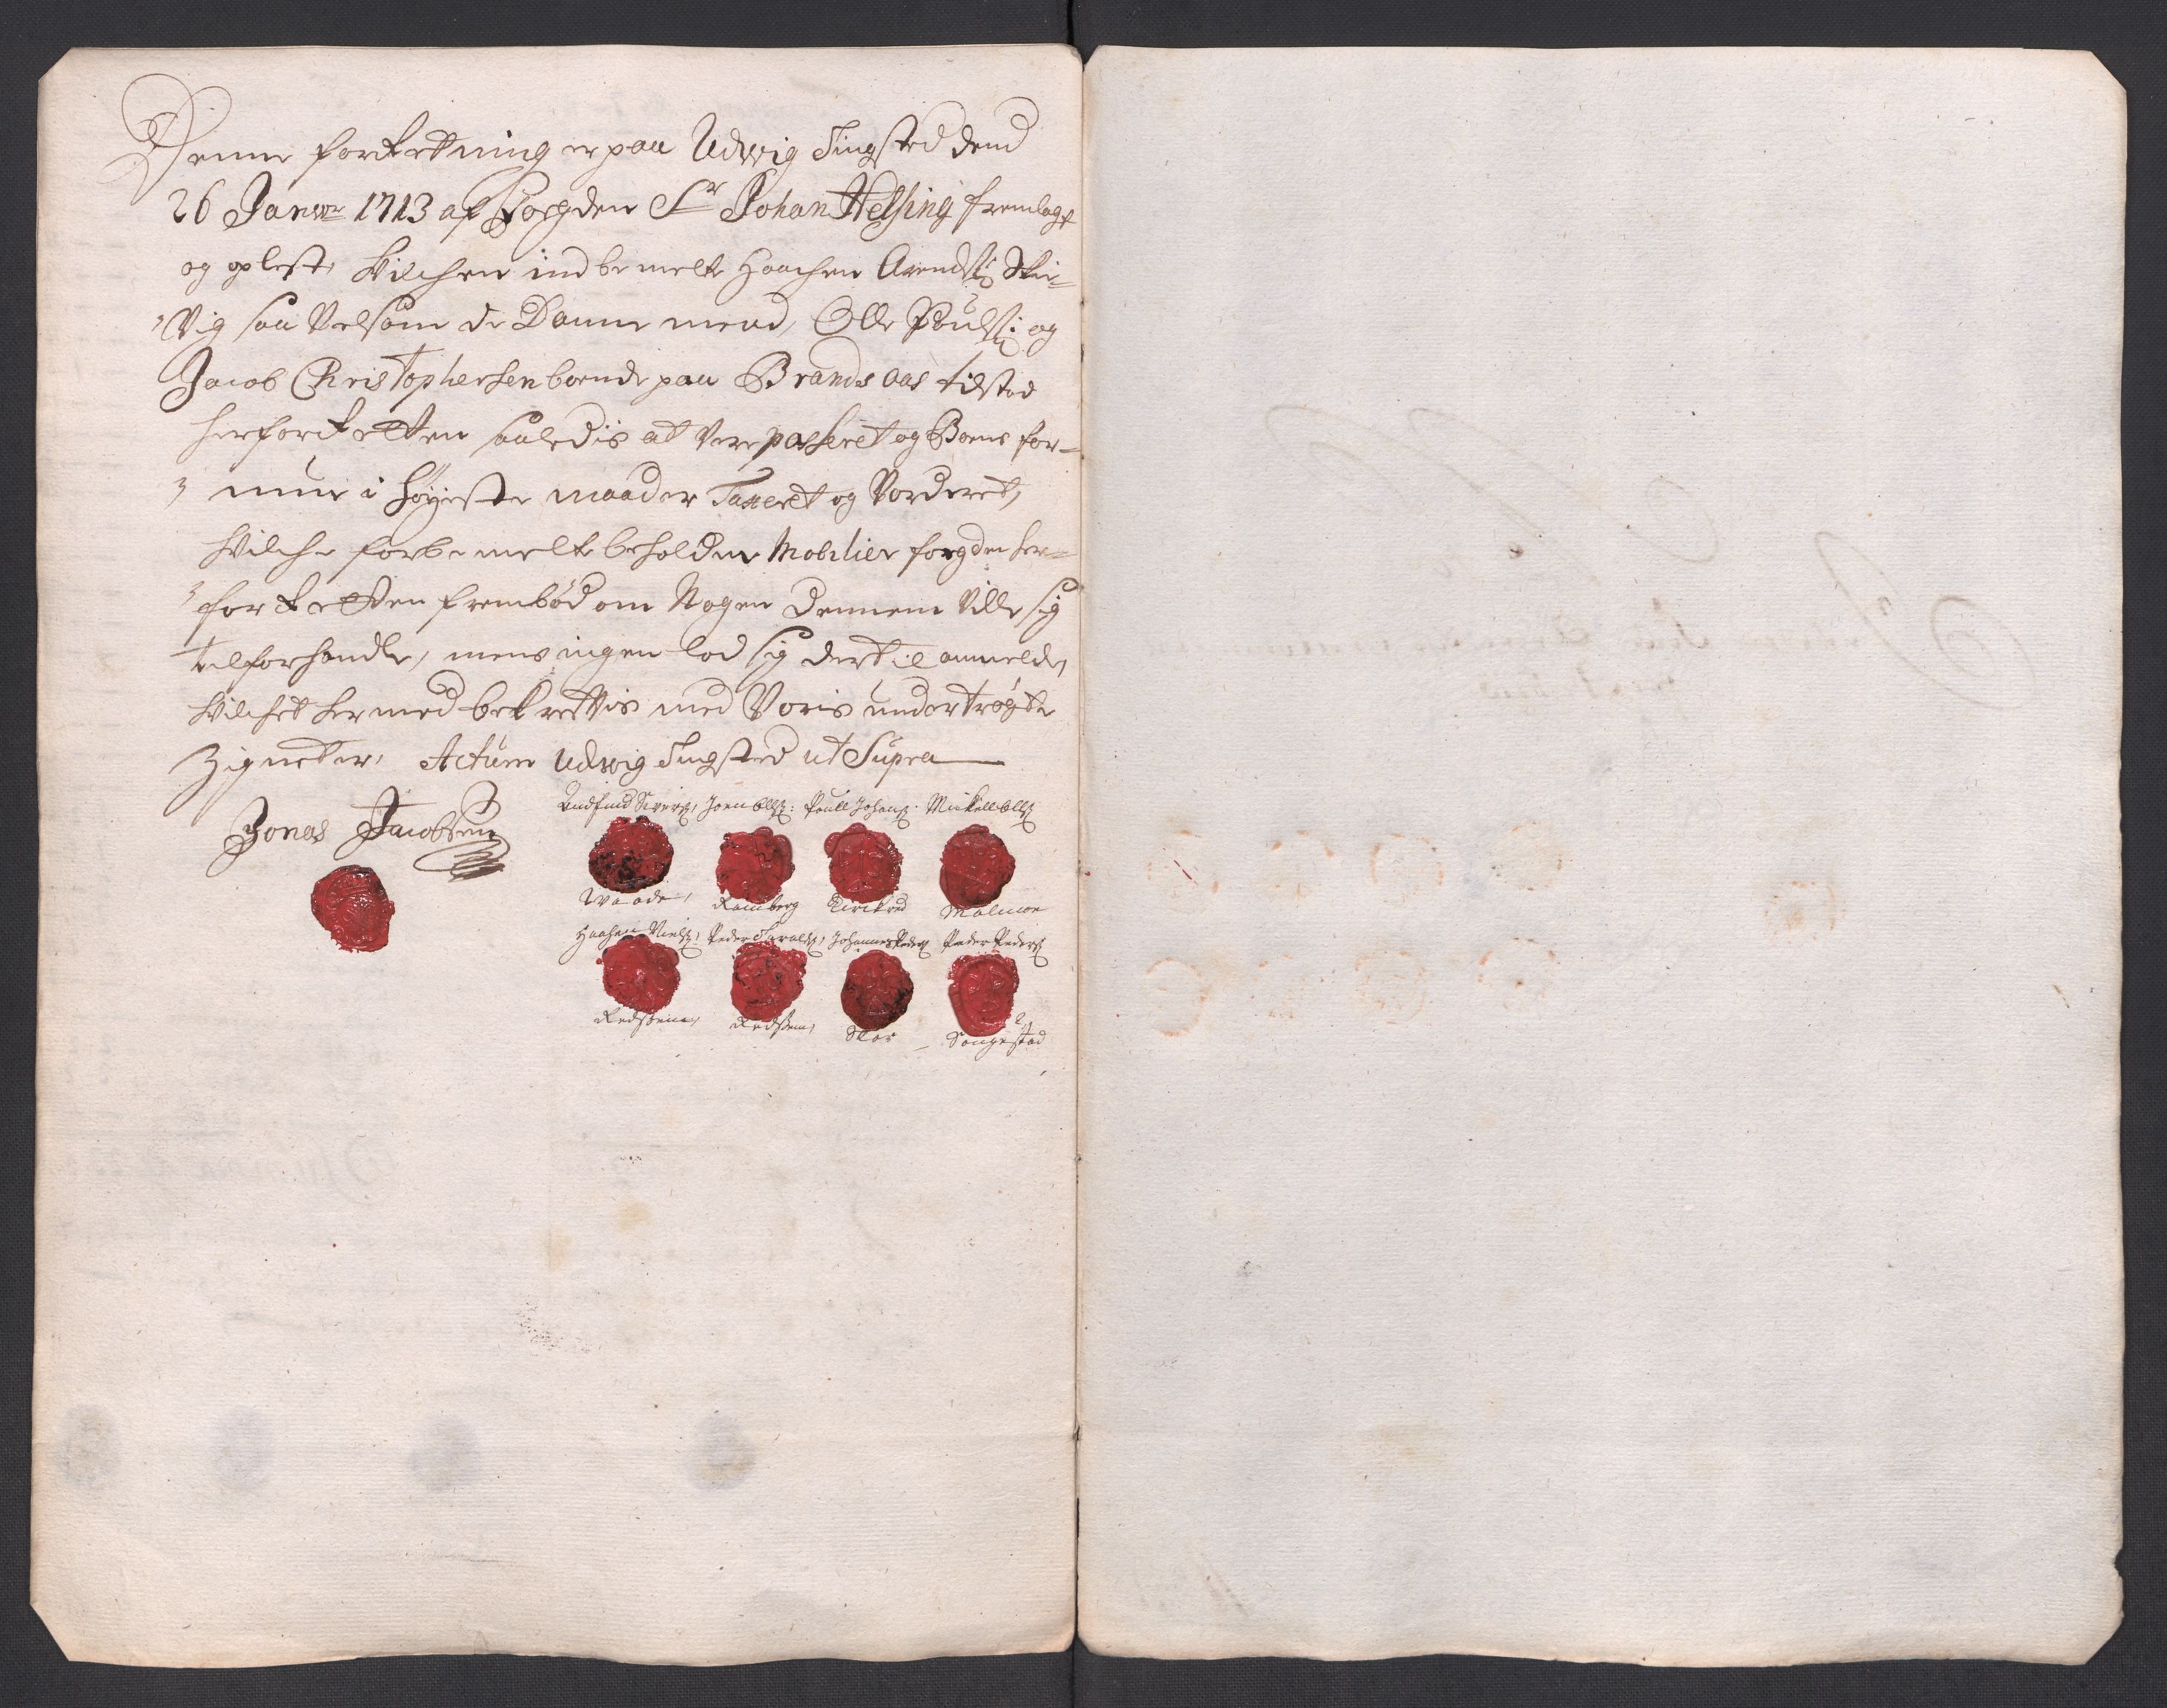 Denne forretning er paa Udvig Tingsted dend
26 Janur 1713 af Fogden Sr Johan Helsing fremlagt
og oplest, Hvilchen indbemelte Haachen Arends: Skier-
Vig saa Velsom de Danne mend, Olle Pouls: og
Jacob Christophersen boende paa Brandsaas tilstod
her for Retten saaledis at Vere passeret og Boens for-
mue i høyeste maader Taxeret og Vorderet,
Hvilche forbemelte beholdne Mobilier fogden her-
for Retten frembød om Nogen dennem Ville sig
tilforhandle, mens ingen lod sig dertil anmelde,
Hvilchet hermed bekreftis med Voris undertrøgte
Zigneter, Actum Udvig Tingsted ut Supra
Jonas Jacobsen
Endfind Sivers, Joen Olls: Poull Johans: Mickell Olls
Waade, Ramberg Kirckred Malmoe
Haachen Niels, Peder Haralds, Johannes Peders Peder Peders
Redsem, Redsem, Skor Songstad